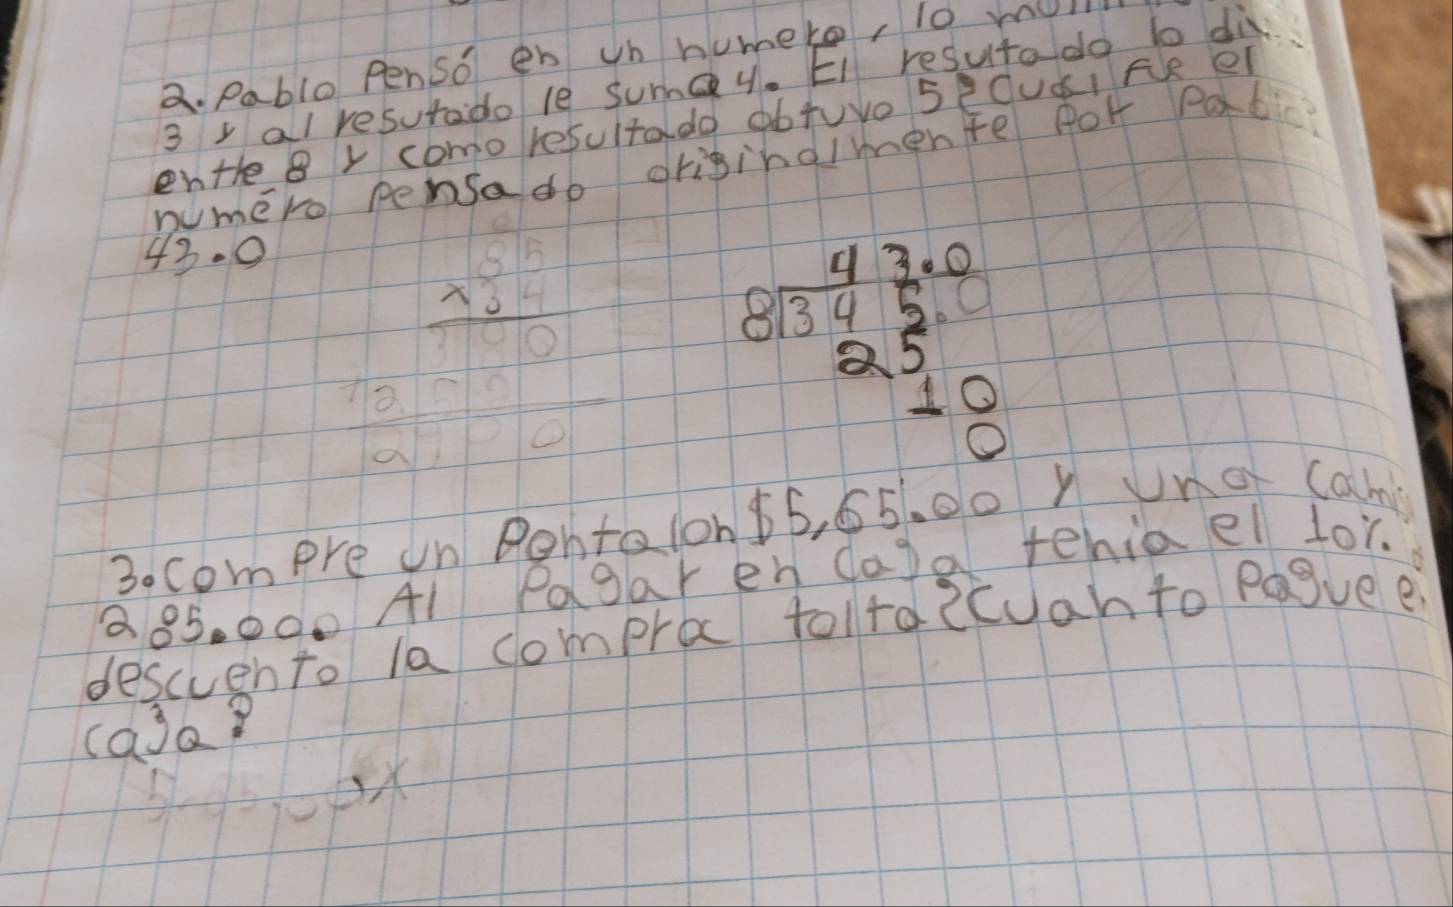 2. Pablo Pensó en un numero, lo
3 y al resutado le suma 4. El resultado lo div
entre 8 y como resultado obtuvo 5 ¿cuál fue el
numéro Pensado originalmente Por Pablo?
43.0
85
x34
43.0
8 345.0
25
10
0
3. compre un Pantalon $5,65.00 y una cami
285.000 Al Pagar en caja tenia el 10%.
descuento la compra tolta ¿cuanto Pague e
caja?